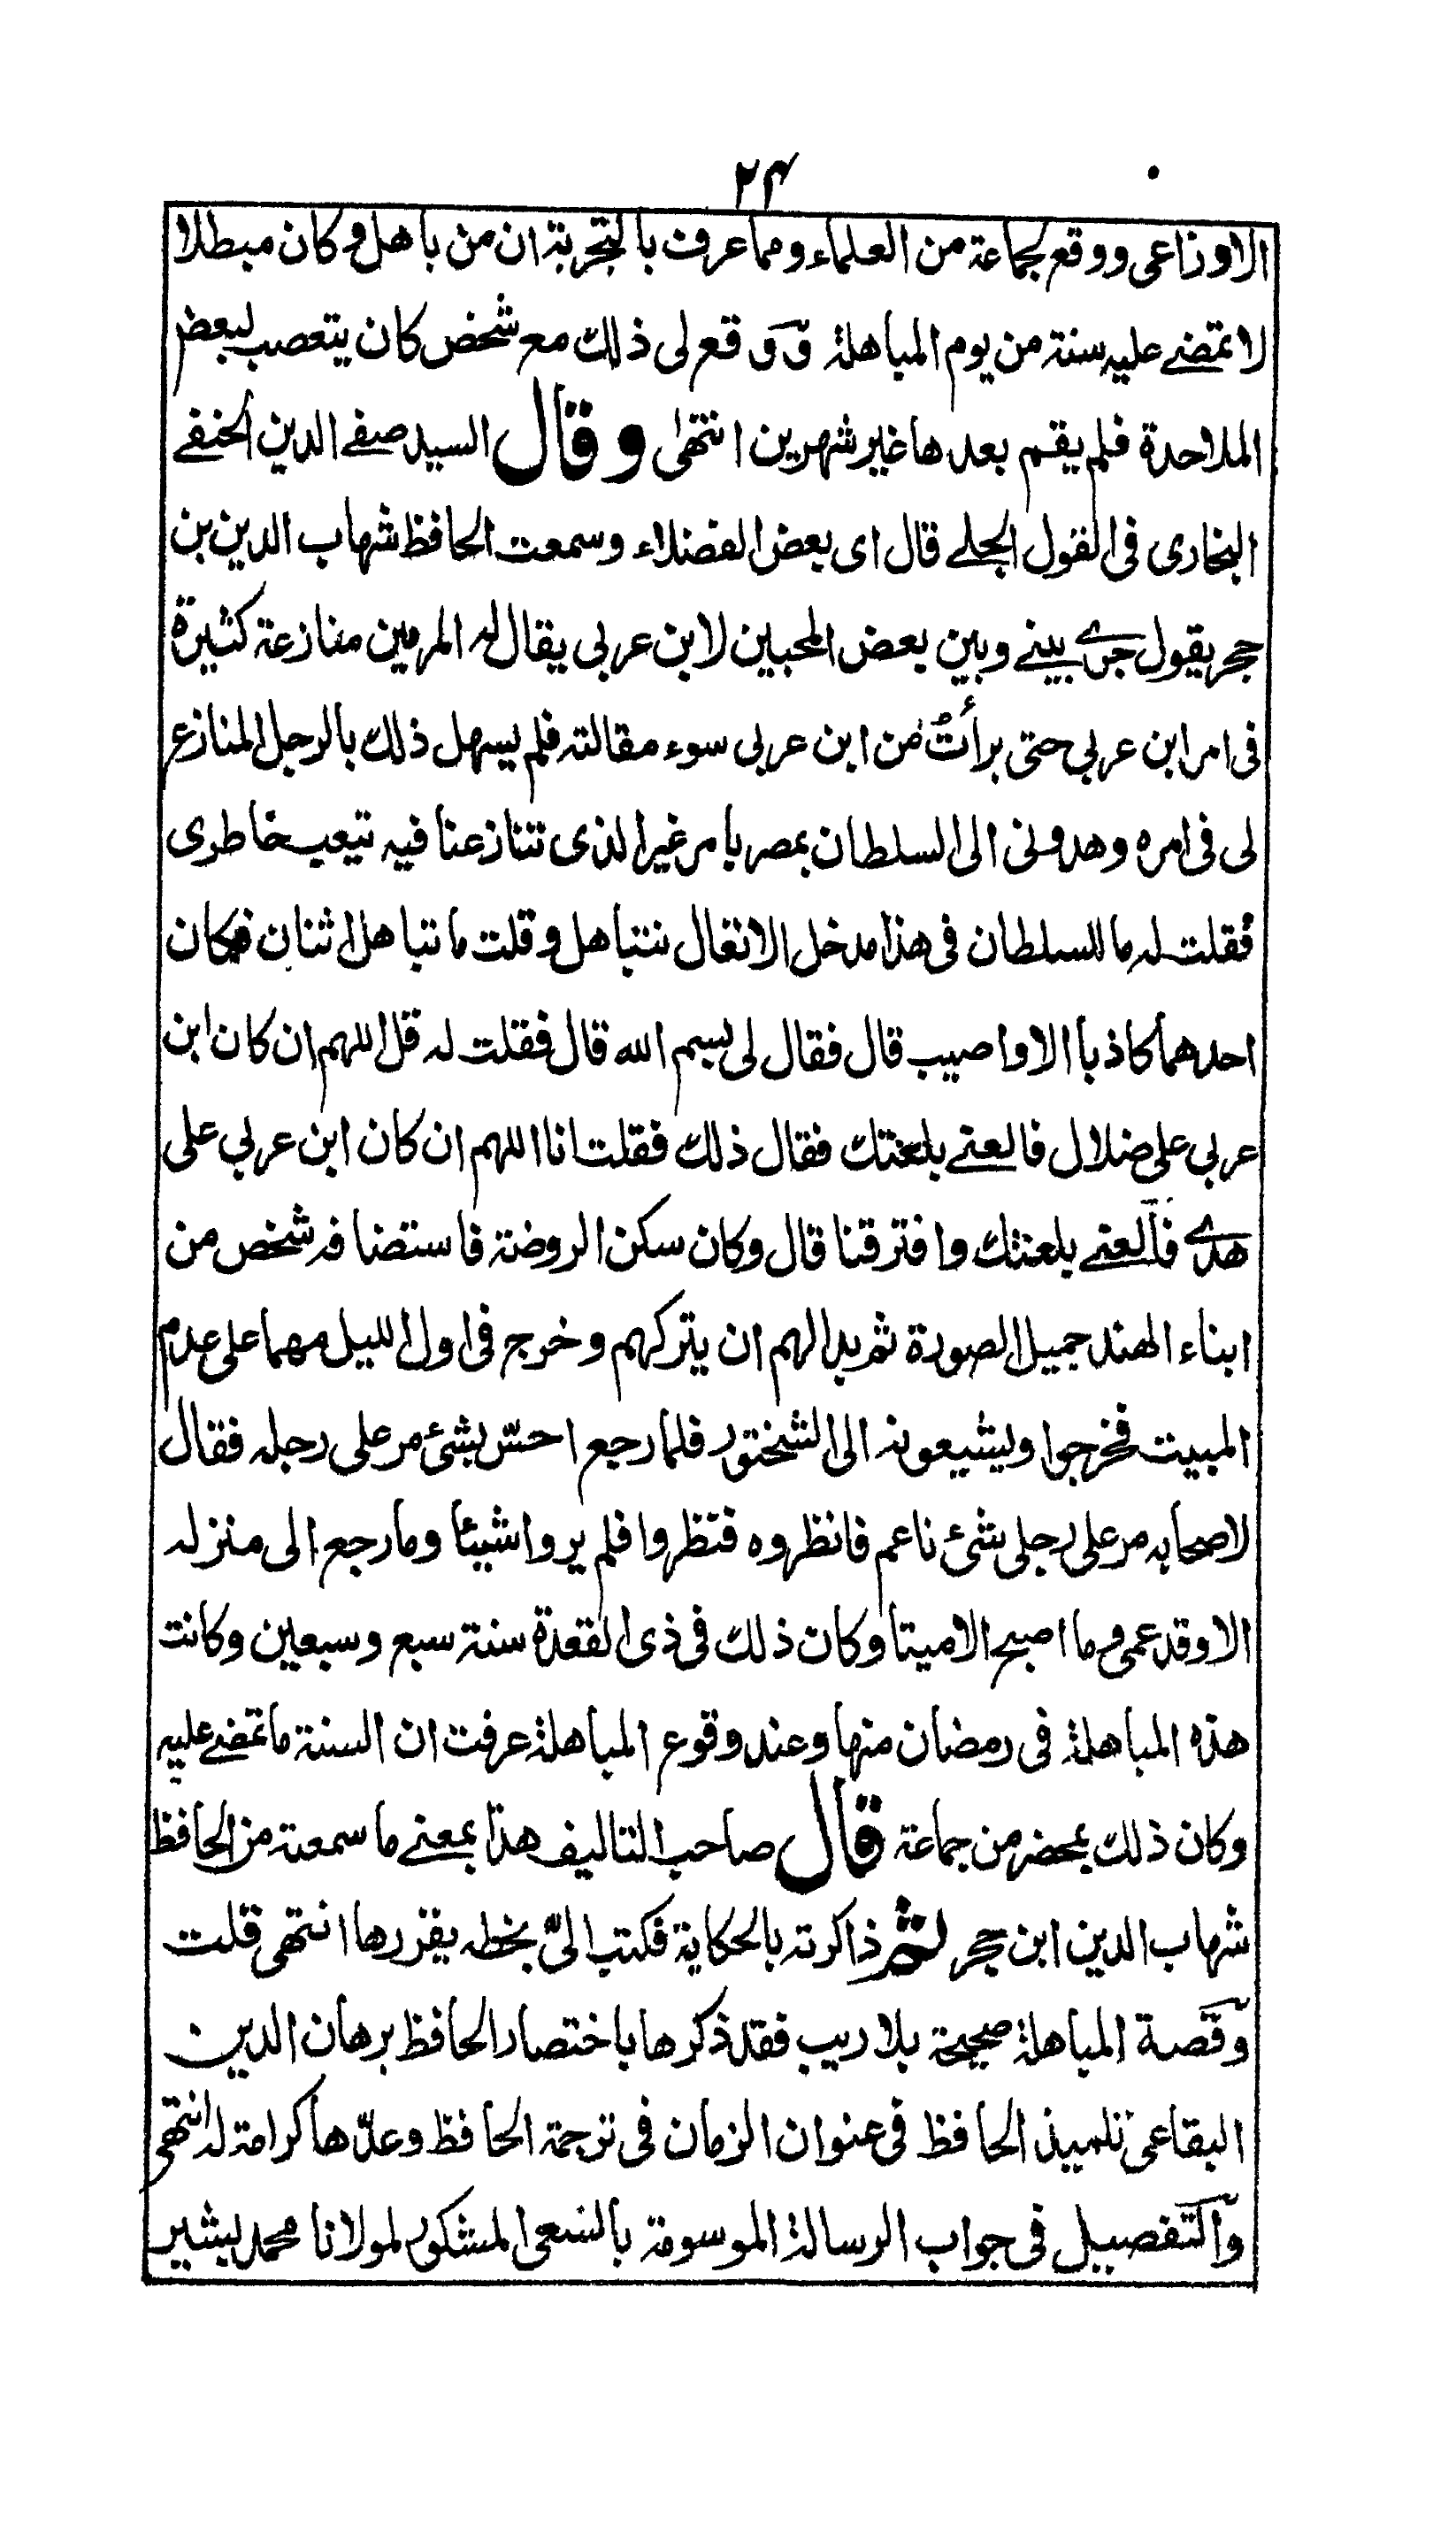 ٢٤
الاوزاعى ووقع لجماعة من العلماء ومما عرف بالتجربة ان من باهل وكان مبطلا
لا تمضے عليه سنة من يوم المباهلة ووقع لى ذلك مع شخص كان يتعصب لبعض
الملاحدة فلم يقم بعدها غير شهرين انتهى وقال السيد صفے الدين الحنفے
البخارى فى القول الجلے قال اى بعض الفضلاء وسمعت الحافظ شهاب الدين بن
حجر يقول جرے بينے وبين بعض المحبين لابن عربى يقال له المرمين منازعة كثيرة
فى امر ابن عربي حتى برأت من ابن عربى سوء مقالته فلم يسهل ذلك بالرجل المنازع
لى فى امره وهددنى الى السلطان بمصر بامر غير الذى تنازعنا فيه تيعب خاطرى
فقلت له ما للسلطان فى هذا مدخل الا تعال نتباهل وقلت ما تباهل اثنان فكان
احدهما كاذبا الا واصيب قال فقال لى بسم الله قال فقلت له قل اللهم ان كان ابن
عربى على ضلال فالعنے بلعنتك فقال ذلك فقلت انا اللهم ان كان ابن عربي على
هدے فالعنے بلعنتك وافترقنا قال وكان سكن الروضة فاستضافه شخص من
ابناء الهند جميل الصورة ثم بدا لهم ان يتركهم وخرج فى اول الليل مهما على عدم
المبيت فخرجوا ويشيعونه الى الشختور فلما رجع احسّ بشئ مر على رجله فقال
لاصحابه مر على رجلى شئ ناعم فانظروه فنظروا فلم يروا شيئا وما رجع الى منزله
الا وقد عمى وما اصبح الا ميتا وكان ذلك فى ذى القعدة سنة سبع وسبعين وكانت
هذه المباهلة فى رمضان منها وعند وقوع المباهلة عرفت ان السنة ما تمضے عليه
وكان ذلك بمحضر من جماعة قال صاحب التاليف هذا بمعنے ما سمعته من الحافظ
شهاب الدين ابن حجر ثم ذاكرته بالحكاية فكتب الىّ بخطه يقررها انتهى قلت
وقصة المباهلة صحيحة بلا ريب فقد ذكرها باختصار الحافظ برهان الدين
البقاعى تلميذ الحافظ فى عنوان الزمان فى ترجمة الحافظ وعدّها كرامة له انتهى
والتفصيل فى جواب الرسالة الموسومة بالسعى المشكور لمولانا محمد بشير